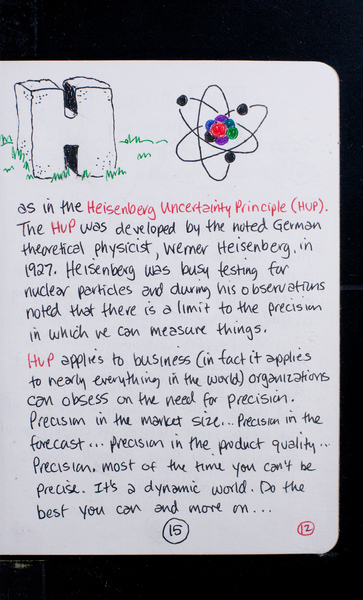 H
as in the Heisenberg Uncertainty Principle (HUP).
The HUP was developed by the noted German
theoretical physicist, Werner Heisenberg, in
1927. Heisenberg was busy testing for
nuclear particles and during his observations
noted that there is a limit to the precision
in which we can measure things.
HUP applies to business (in fact it applies
to nearly everything in the world) organizations
can obsess on the need for precision.
Precision in the market size... Precision in the
forecast... precision in the product quality...
Precision, most of the time you can't be
precise. It's a dynamic world. Do the
best you can and move on...
15
12